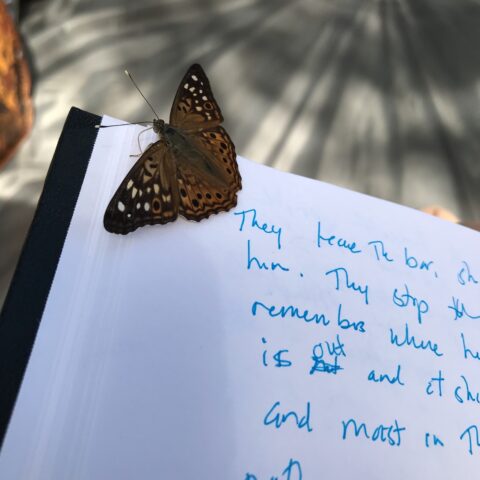 They leave the bar. sh
him. They stop th
remembers where he
is out and it shi
and moist in th
path